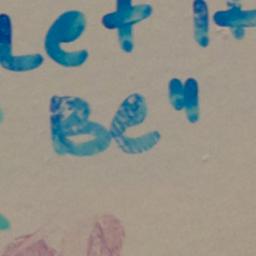 Let it
Be"